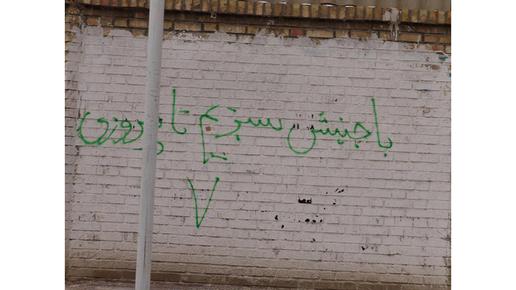 با جنبش سبزیم تا پیروزی
V